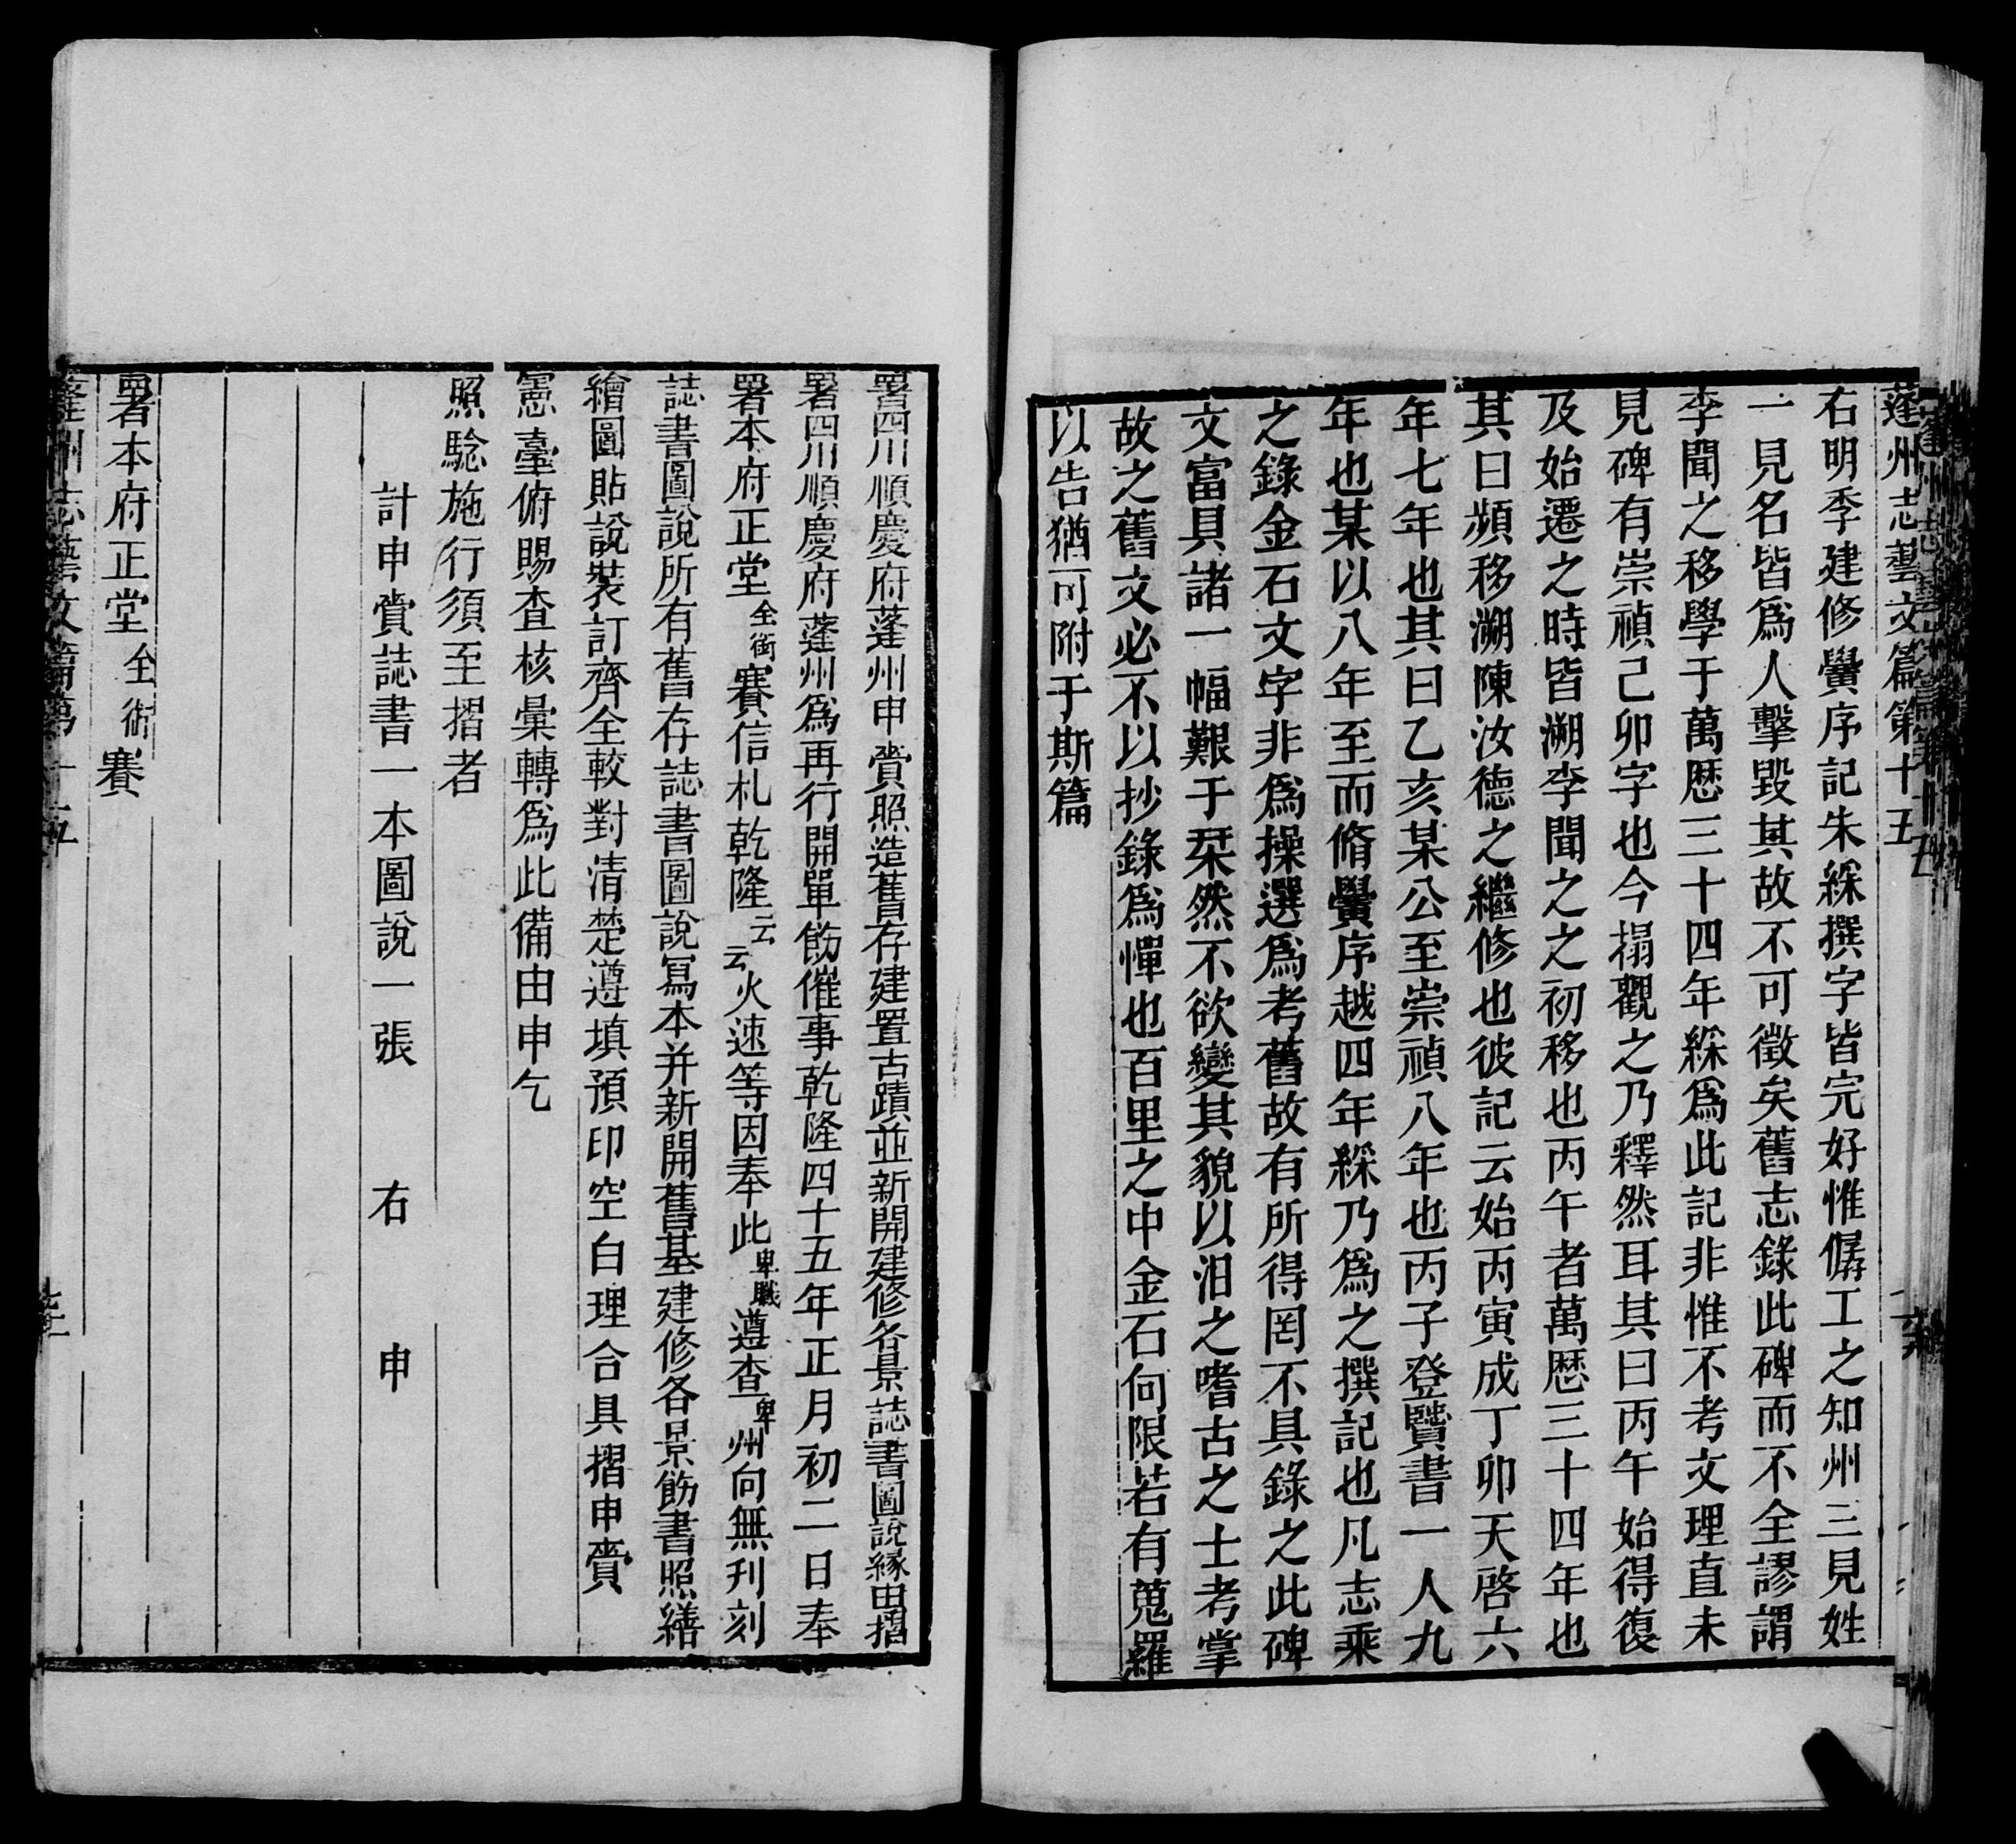 蓬州志藝文篇第十五
右明季建修黌序記朱綵撰字皆完好惟僝工之知州三見姓
一見名皆爲人擊毀其故不可徵矣舊志錄此碑而不全謬謂
李聞之移學于萬厯三十四年綵爲此記非惟不考文理直未
見碑有崇禎己卯字也今搨觀之乃釋然耳其曰丙午始得復
及始遷之時皆溯李聞之之初移也丙午者萬厯三十四年也
其曰頻移溯陳汝德之繼修也彼記云始丙寅成丁卯天啓六
年七年也其曰乙亥某公至崇禎八年也丙子登賢書一人九
年也某以八年至而脩黌序越四年綵乃爲之撰記也凡志乘
之錄金石文字非爲操選爲考舊故有所得罔不具錄之此碑
文富具諸一幅艱于栞然不欲變其貌以汨之嗜古之士考掌
故之舊文必不以抄錄爲憚也百里之中金石何限若有蒐羅
以告猶可附于斯篇
署四川順慶府蓬州申賫照造舊存建置古蹟並新開建修各景誌書圖說緣由摺
署四川順慶府蓬州爲再行開單飭催事乾隆四十五年正月初二日奉
署本府正堂全銜賽信札乾隆云云火速等因奉此卑職遵查卑州向無刊刻
誌書圖說所有舊存誌書圖說寫本并新開舊基建修各景飭書照繕
繪圖貼說裝訂齊全較對清楚遵填預印空白理合具摺申賫
憲臺俯賜查核彙轉爲此備由申乞
照騐施行須至摺者
計申賫誌書一本圖說一張　右　申
署本府正堂全銜賽
蓬州志藝文篇第十五